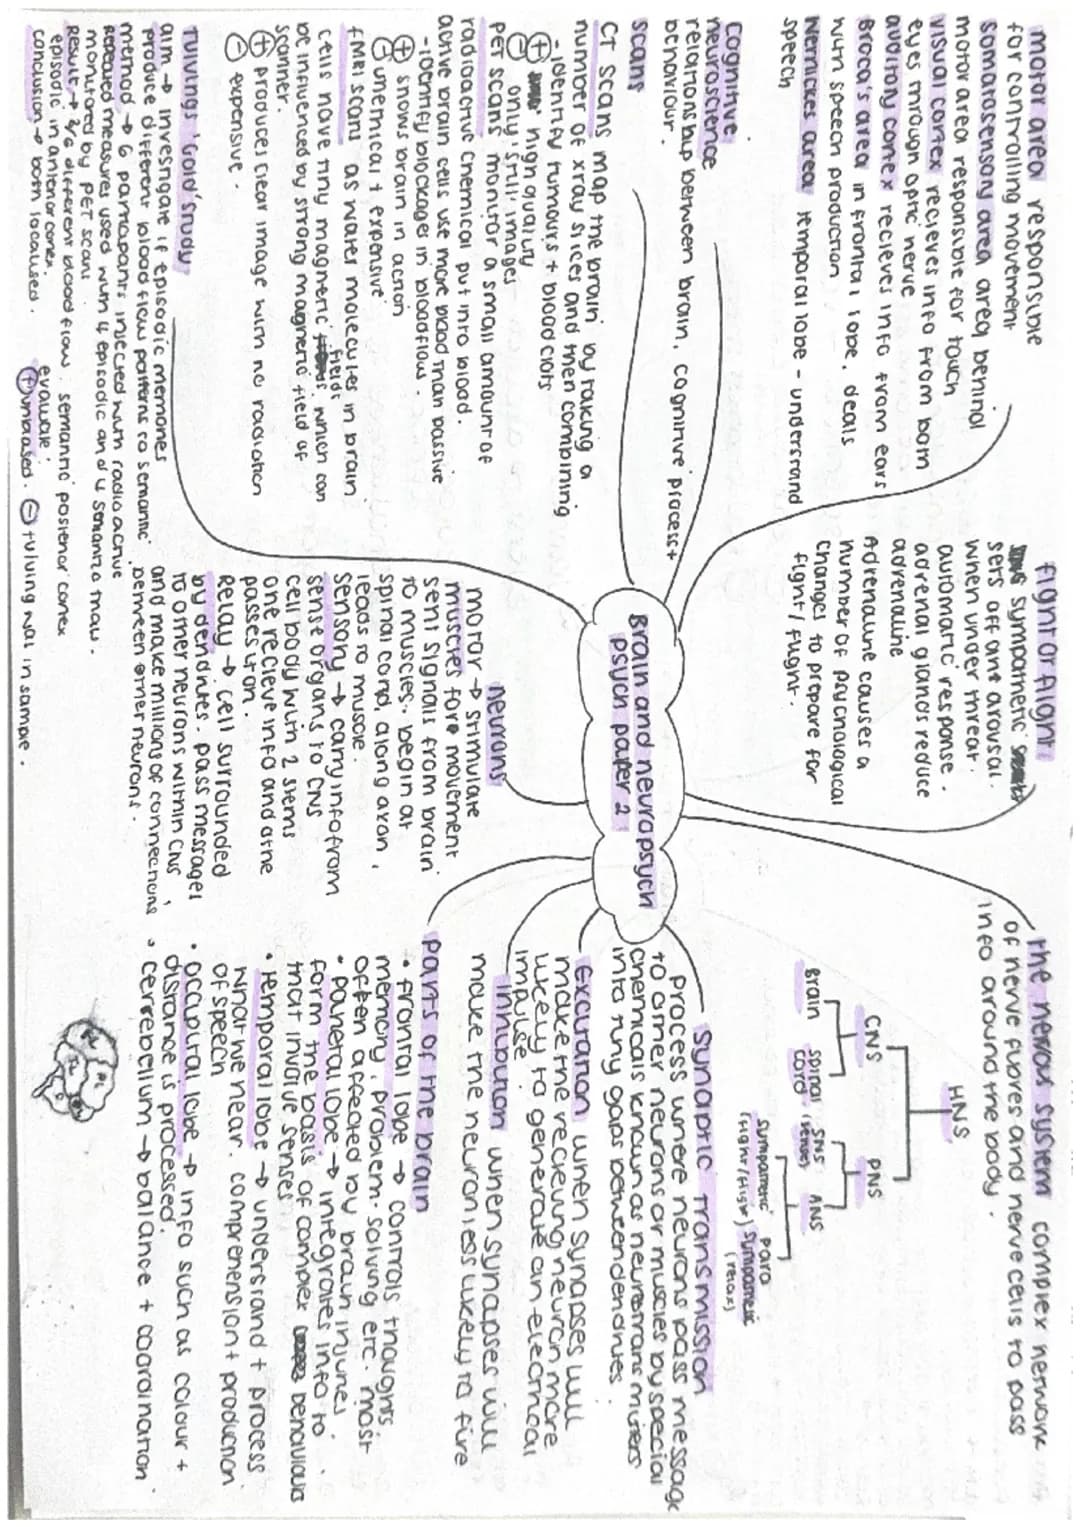 Brain and neuropsych
psych paper 2
motor area responsible
for controlling movement
somatosensory area area behind
motor area responsible for touch
visual cortex recieves info from both
eyes through optic nerve
auditory cortex recieves info from ears
Broca's area in frontal lobe. deals
with speech production
Wernickes area temporal lobe - understand
speech
cognitive
neuroscience
relationship between brain, cognitive process +
behaviour.
scans
CT scans map the brain by taking a
number of xray slices and then combining
- identify tumours + blood clots
+ high quality
- only 'still' images
PET scans monitor a small amount of
radioactive chemical put into blood.
active brain cells use more blood than passive
- identify blockages in bloodflow.
+ shows brain in action
- unethical + expensive
fMRI scans as water molecules in brain
cells have tiny magnetic fields which can
be influenced by strong magnetic field of
scanner.
+ produces clear image with no radiation
- expensive.
Tulvings 'Gold' study
aim → investigate if episodic memories
produce different blood flow patterns to semantic.
method → 6 participants injected with radioactive
Repeated measures used with 4 episodic and 4 semantic
monitored by PET scan.
Result → 3/6 different bloodflow. semantic posterior cortex
episodic in anterior cortex.
conclusion → both localised.
evaluate:
+ unbiased. - tulving was in sample.
fight or flight
sympathetic
sets off ant arousal.
when under threat.
automatic response.
adrenal glands reduce
adrenaline
Adrenaline causes a
number of psychological
changes to prepare for
fight / flight.
neurons
motor → stimulate
muscles for movement
sent signals from brain
to muscles. begin at
spinal cord, along axon,
leads to muscle.
sensory → carry info from
sense organs to CNS
cell body with 2 stems
one recieve info and othe
passes it on.
Relay → cell surrounded
by dendrites. pass messages
to other neurons within CNS,
and make millions of connections
between other neurons.
the nervous system complex network
of nerve fibres and nerve cells to pass
info around the body.
HNS
CNS PNS
Brain spinal cord SNS (senses) ANS
sympathetic (fight/flight) para sympathetic (relax)
synaptic transmission
process where neurons pass message
to other neurons or muscles by special
chemicals known as neurotransmitters
into tiny gaps between dendrites.
Excitation when synapses will
make the recieving neuron more
likely to generate an electrical
impulse
Inhibition when synapses will
make the neuron less likely to fire
parts of the brain
• frontal lobe → controls thoughts,
memory, problem-solving etc. most
often affected by brain injuries
• parietal lobe → integrates info to
form the basis of complex behaviours
that involve senses
• temporal lobe → understand + process
what we hear. comprehension + production
of speech
• occipital lobe → info such as colour +
distance is processed.
• cerrebellum → balance + coordination.